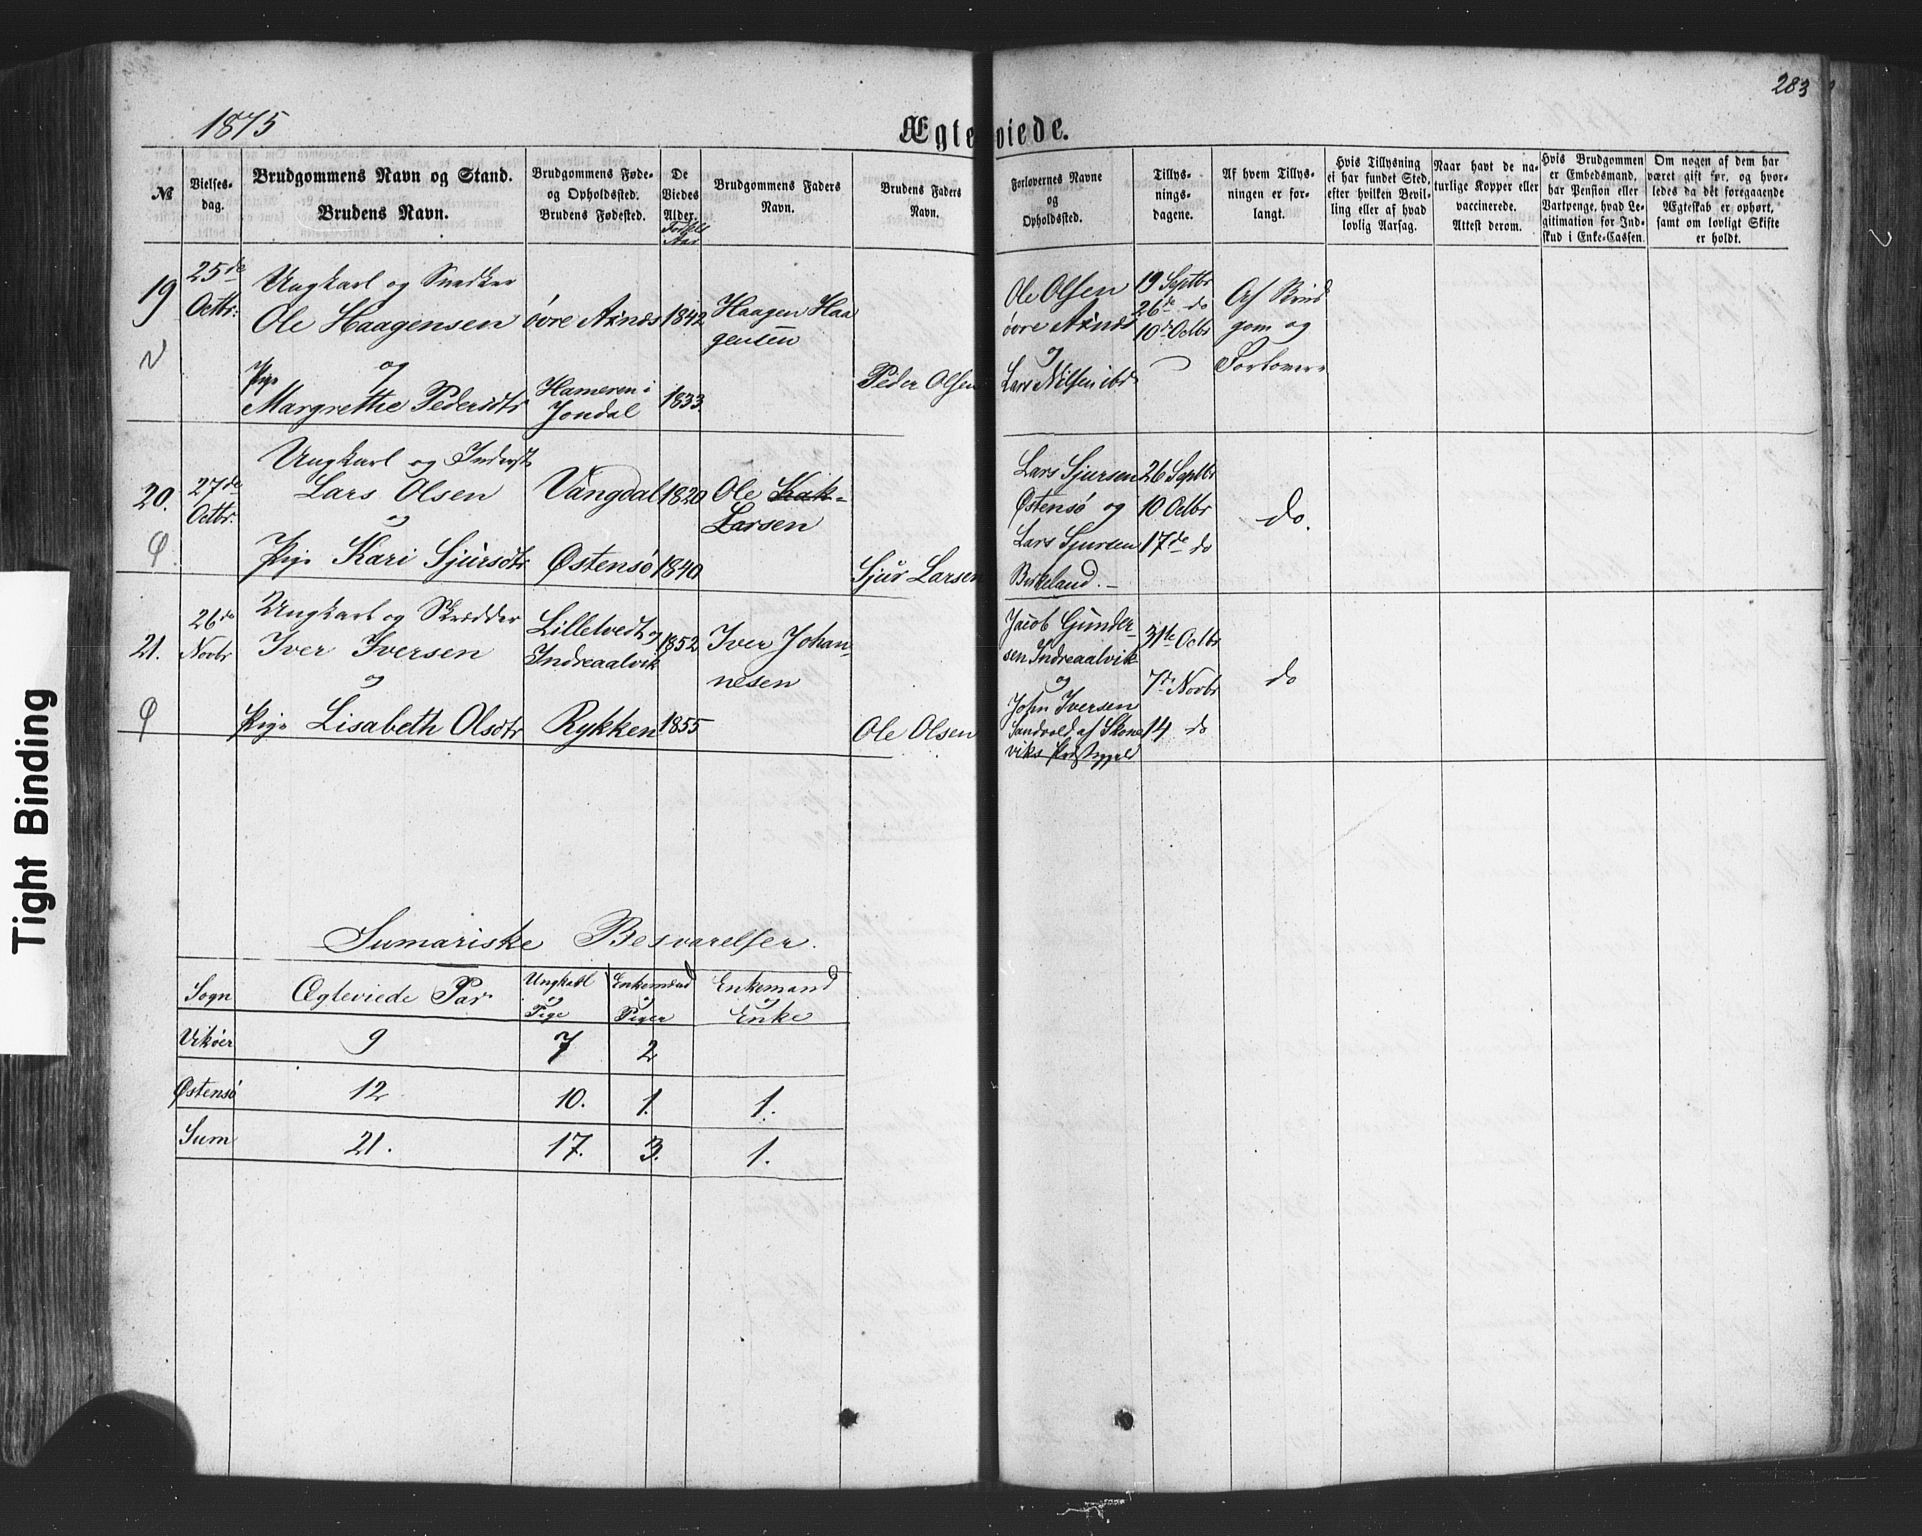 283
1875
Ægteviede.
№
Vielses-
dag.
Brudgommens Navn og Stand.
Brudens Navn.
Brudgommens Føde-
og Opholdssted.
Brudens Fødested.
De
Viedes
Alder.
Fødsels
Aar
Brudgommens Faders
Navn.
Brudens Faders
Navn.
Forlovernes Navne
og
Opholdssted.
Tillys-
nings-
dagene.
Af hvem Tillys-
ningen er for-
langt.
Hvis Tillysning
ei har fundet Sted,
efter hvilken Bevil-
ling eller af hvad
lovlig Aarsag.
Naar havt de na-
turlige Kopper eller
vaccinerede.
Attest derom.
Hvis Brudgommen
er Embedsmand,
har Pension eller
Vartpenge, hvad Le-
gitimation for Ind-
skud i Enke-Cassen.
Om nogen af dem har
været gift før, og hvor-
ledes da det foregaaende
Ægteskab er ophørt,
samt om lovligt Skifte
er holdt.
19
25de
Octbr:
Ungkarl og Snedker
Ole Haagensen
og
Pige
Margrethe Pedersdtr
øvre Axnæs
Hameren i
Jondal
1842
1833
Haagen Haa
gensen
Peder Olsen
Ole Olsen
øvre Axnæs
og
Lars Nilsen ibd
19 Septbr
26de do
10de Octbr
Af Brud
gom og
Forlovere
20.
27de
Octbr:
Ungkarl og Inderst
Lars Olsen
og
Pige Kari Sjursdtr
Vangdal
Østensø
1820
1840
Ole
Larsen
Sjur Larsen
Lars Sjursen
Østensø og
Lars Sjursen
Birkeland.
26 Septbr
10 Octbr
17de do
do.
21.
26de
Novbr
Ungkarl og Skrædder
Iver Iversen
og
Pige Lisabeth Olsdtr
Lilletvedt og
Indreaalvik
Rykken
1852
1855
Iver Johan-
nesen
Ole Olsen
Jacob Gunder-
sen Indreaalvik
og
John Iversen
Sandvold af Skone
viks Præstegjeld
31te Octbr
7de Novbr
14 do
do
Sumariske Besvarelser.
Sogn
Ægteviede Par
Ungkarl
og
Pige
Enkemænd
og
Piger
Enkemand
og
Enke
Vikøer 9 7 2
Østensø 12 10. 1. 1.
Sum 21. 17. 3. 1.
Tight Binding